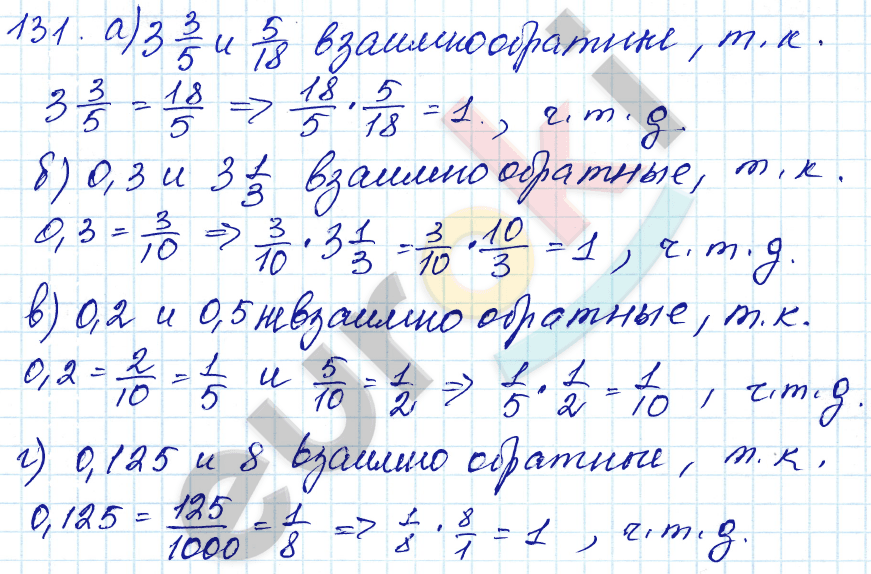 131. а) 3 3/5 и 5/18 взаимнообратные, т.к.
3 3/5 = 18/5 => 18/5 · 5/18 = 1., ч.т.д.
б) 0,3 и 3 1/3 взаимно обратные, т.к.
0,3 = 3/10 => 3/10 · 3 1/3 = 3/10 · 10/3 = 1, ч.т.д.
в) 0,2 и 0,5 не взаимно обратные, т.к.
0,2 = 2/10 = 1/5 и 5/10 = 1/2 => 1/5 · 1/2 = 1/10, ч.т.д.
г) 0,125 и 8 взаимно обратные, т.к.
0,125 = 125/1000 = 1/8 => 1/8 · 8/1 = 1, ч.т.д.
euroki